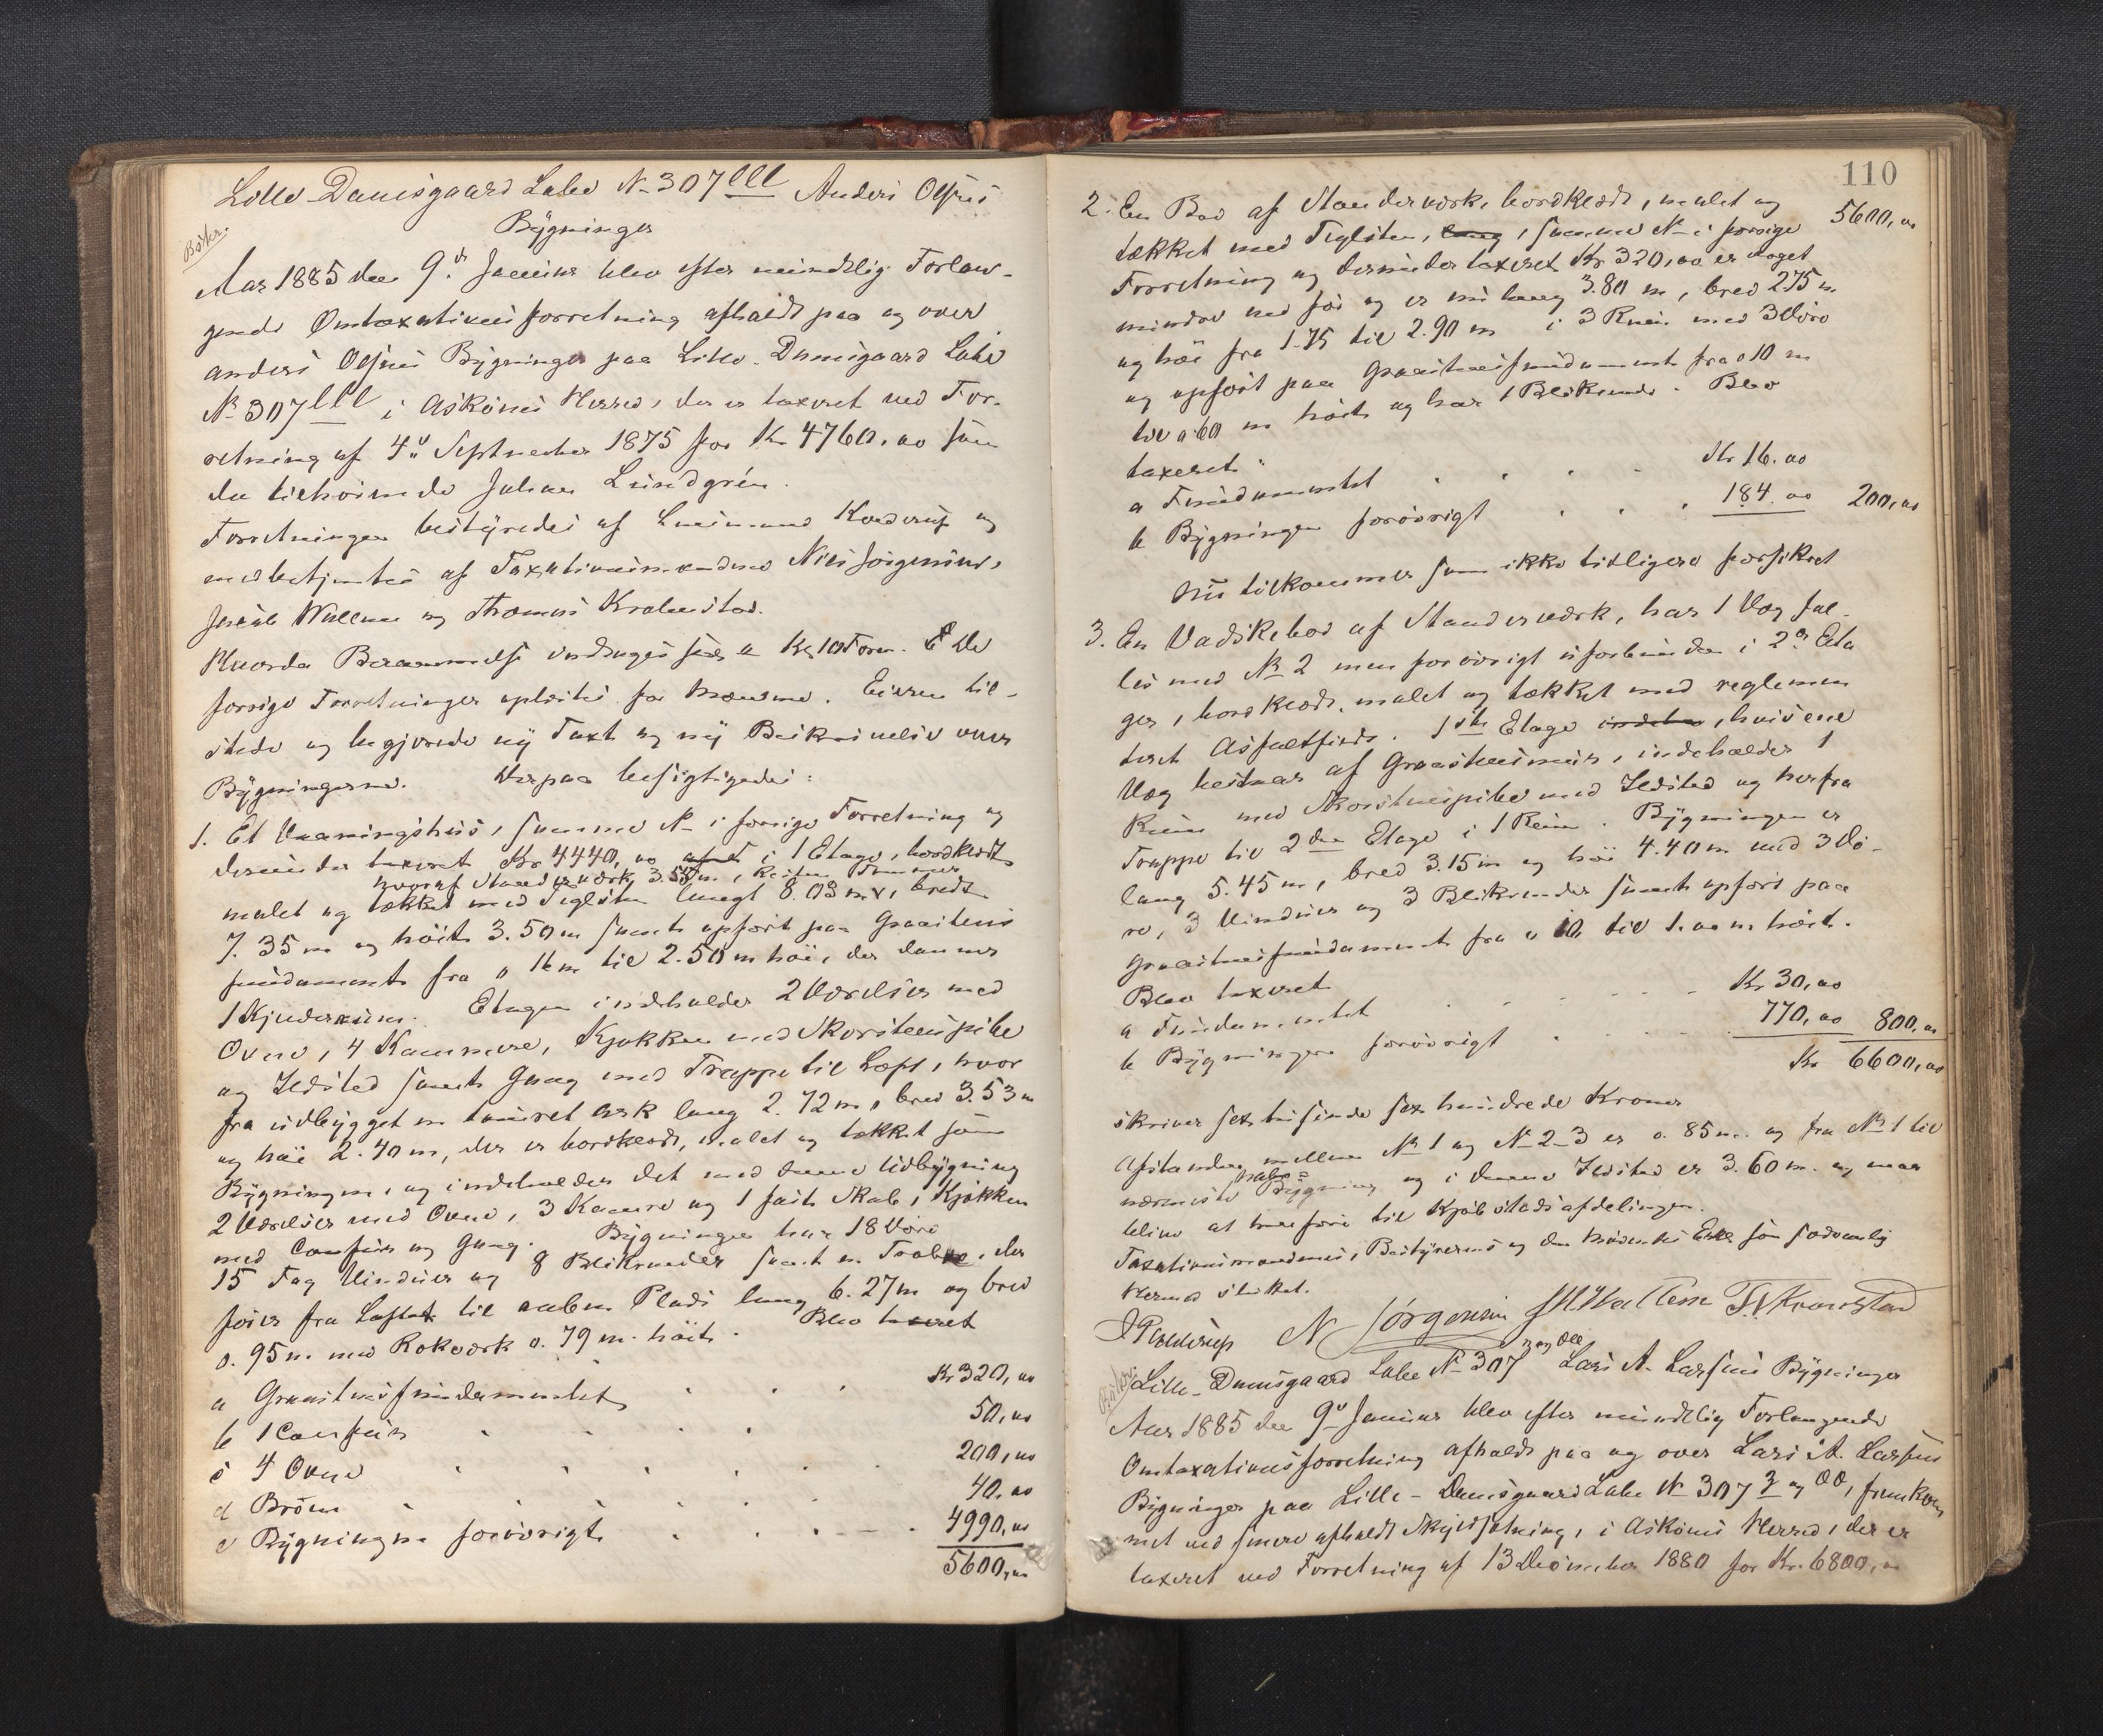 Lille-Damsgaard Labo N- 307 lll Anders Olsens
Bygninger
Beskr.
Aar 1885 den 9de Januar blev efter mündtlig Forlan-
gende Omtaxationsforretning afholdt paa og over
Anders Olsens Bygninger paa Lille-Damsgaard Labo
N- 307 lll i Askøens Herred, der er taxeret ved For-
retning af 4de September 1875 for Kr 4760,00 som
da tilhørende Johan Lundgrén.
Forretningen bestyredes af Lensmand Kolderup og
medbetjentes af Taxationsmændene Nils Jørgensen,
Jacob Wallem og Thomas Krohnstad.
forrige Forretninger oplæstes for Mændene. Eieren til-
stede og begjærede ny Taxt og ny Beskrivelse over
Bygningerne. Derpaa besigtigedes:
1. Et Vaaningshus, samme N- i forrige Forretning og
derunder taxeret Kr 4440,00 i 1 Etage, bordklædt
hvoraf Standerværk 3.55 m, Resten Tømmer
malet og tækket med Teglsten langt 8.03 m, bredt
7.35 m og høit 3.50 m samt opført paa Graastens
fundament fra 0 16 m til 2.50 m høi, der danner
1 Kjelderrum. Etagen indeholder 2 Værelser med
Ovne, 4 Kammere, Kjøkken med Skorstenspibe
og Ildsted samt Gang med Trappe til Loft, hvor
fra udbygget en tømret Ark lang 2.72 m, bred 3.53 m
og høi 2.40 m, der er bordklædt, malet og tækket som
Bygningen, og indeholder det med denne Udbygning
2 Værelser med Ovne, 3 Kamre og 1 fast Skab, Kjøkken
med Comfur og Gang. Bygningen har 18 Døre
15 Fag Vinduer og 8 Blikrender samt en Trappe, der
fører fra Loftet til aaben Plads lang 6.27 m og bred
0.95 m med Rekværk 0.79 m høit. Blev taxeret
a Graastensfundamentet Kr 320,00
b 1 Comfur 50,00
c 4 Ovne 200,00
d Brønn 40,00
e Bygningen forøvrigt 4990,00
5600,00
110
5600,00
2. En Bod af Standerværk, bordklædt, malet og
tækket med Teglsten, lang, samme N- i forrige
Forretning og derunder taxeret Kr 320,00 er noget
mindre end før og er nu lang 3.80 m, bred 2.75 m
og høi fra 1.75 til 2.90 m i 3 Rum med 3 Døre
og opført paa Graastensfundament fra 0 10 m
til 0 60 m høit og har 1 Blikrende. Blev
taxeret:
a Fundamentet Kr 16.00
b Bygningen forøvrigt 184.00 200,00
Nu tilkommer som ikke tidligere forsikret
3. En Vadskebod af Standerværk, har 1 Væg fæl-
les med N- 2 men forøvrigt uforbunden i 2de Eta
ger, bordklædt, malet og tækket med reglemen
teret Asfaltfilt. 1ste Etage, hvis ene
Væg bestaar af Graastensmur, indeholder 1
Rum med Skorstenspibe med Ildsted og herfra
Trappe til 2den Etage i 1 Rum. Bygningen er
lang 5.45 m, bred 3.15 m og høi 4.40 m med 3 Dø-
re, 3 Vinduer og 3 Blikrender samt opført paa
Graastensfundament fra 0 10 til 1.00 m høit.
Blev taxeret
a Fundamentet Kr 30,00
b Bygningen forøvrigt 770,00 800,00
Kr 6600,00
skriver sex tusinde sex hundrede Kroner
Afstanden mellem N- 1 og N- 2-3 er 0.85 m. og fra N- 1 til
nabo=
nærmeste Bygning og i denne Ildsted er 3.60 m. og maa
blive at henføre til Kjøbstadsafdelingen.
Taxationsmændenes, Bestyrerens og den Mødendes Edel som sædvanlig
Hermed sluttet.
J Kolderup N Jørgensen J. H. Wallem T. Kronstad
Beskr.
Lille-Damsgaard Labo N- 307 z og øø Lars A. Larsens Bygninger
Aar 1885 den 9de Januar blev efter mündtlig Forlangende
Omtaxationsforretning afholdt paa og over Lars A. Larsens
Bygninger paa Lille-Damsgaard Labo N- 307 z og øø, fremkom
met ved senere afholdt Skyldsætning, i Askøens Herred, der er
taxeret ved Forretning af 13 December 1880 for Kr. 6800,00